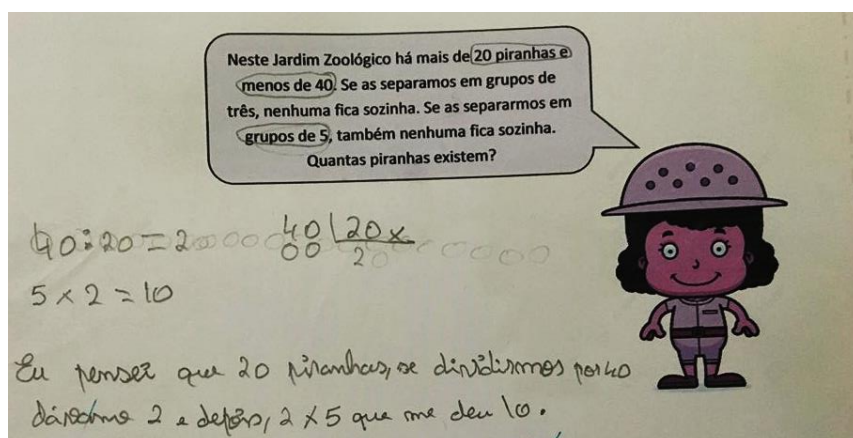 Neste Jardim Zoológico há mais de 20 piranhas e
menos de 40. Se as separamos em grupos de
três, nenhuma fica sozinha. Se as separarmos em
grupos de 5, também nenhuma fica sozinha.
Quantas piranhas existem?
40:20=2 40 20 x
00 2
5 x 2 = 10
Eu pensei que 20 piranhas, se dividirmos por 40
2 e depois, 2 x 5 que me deu 10.